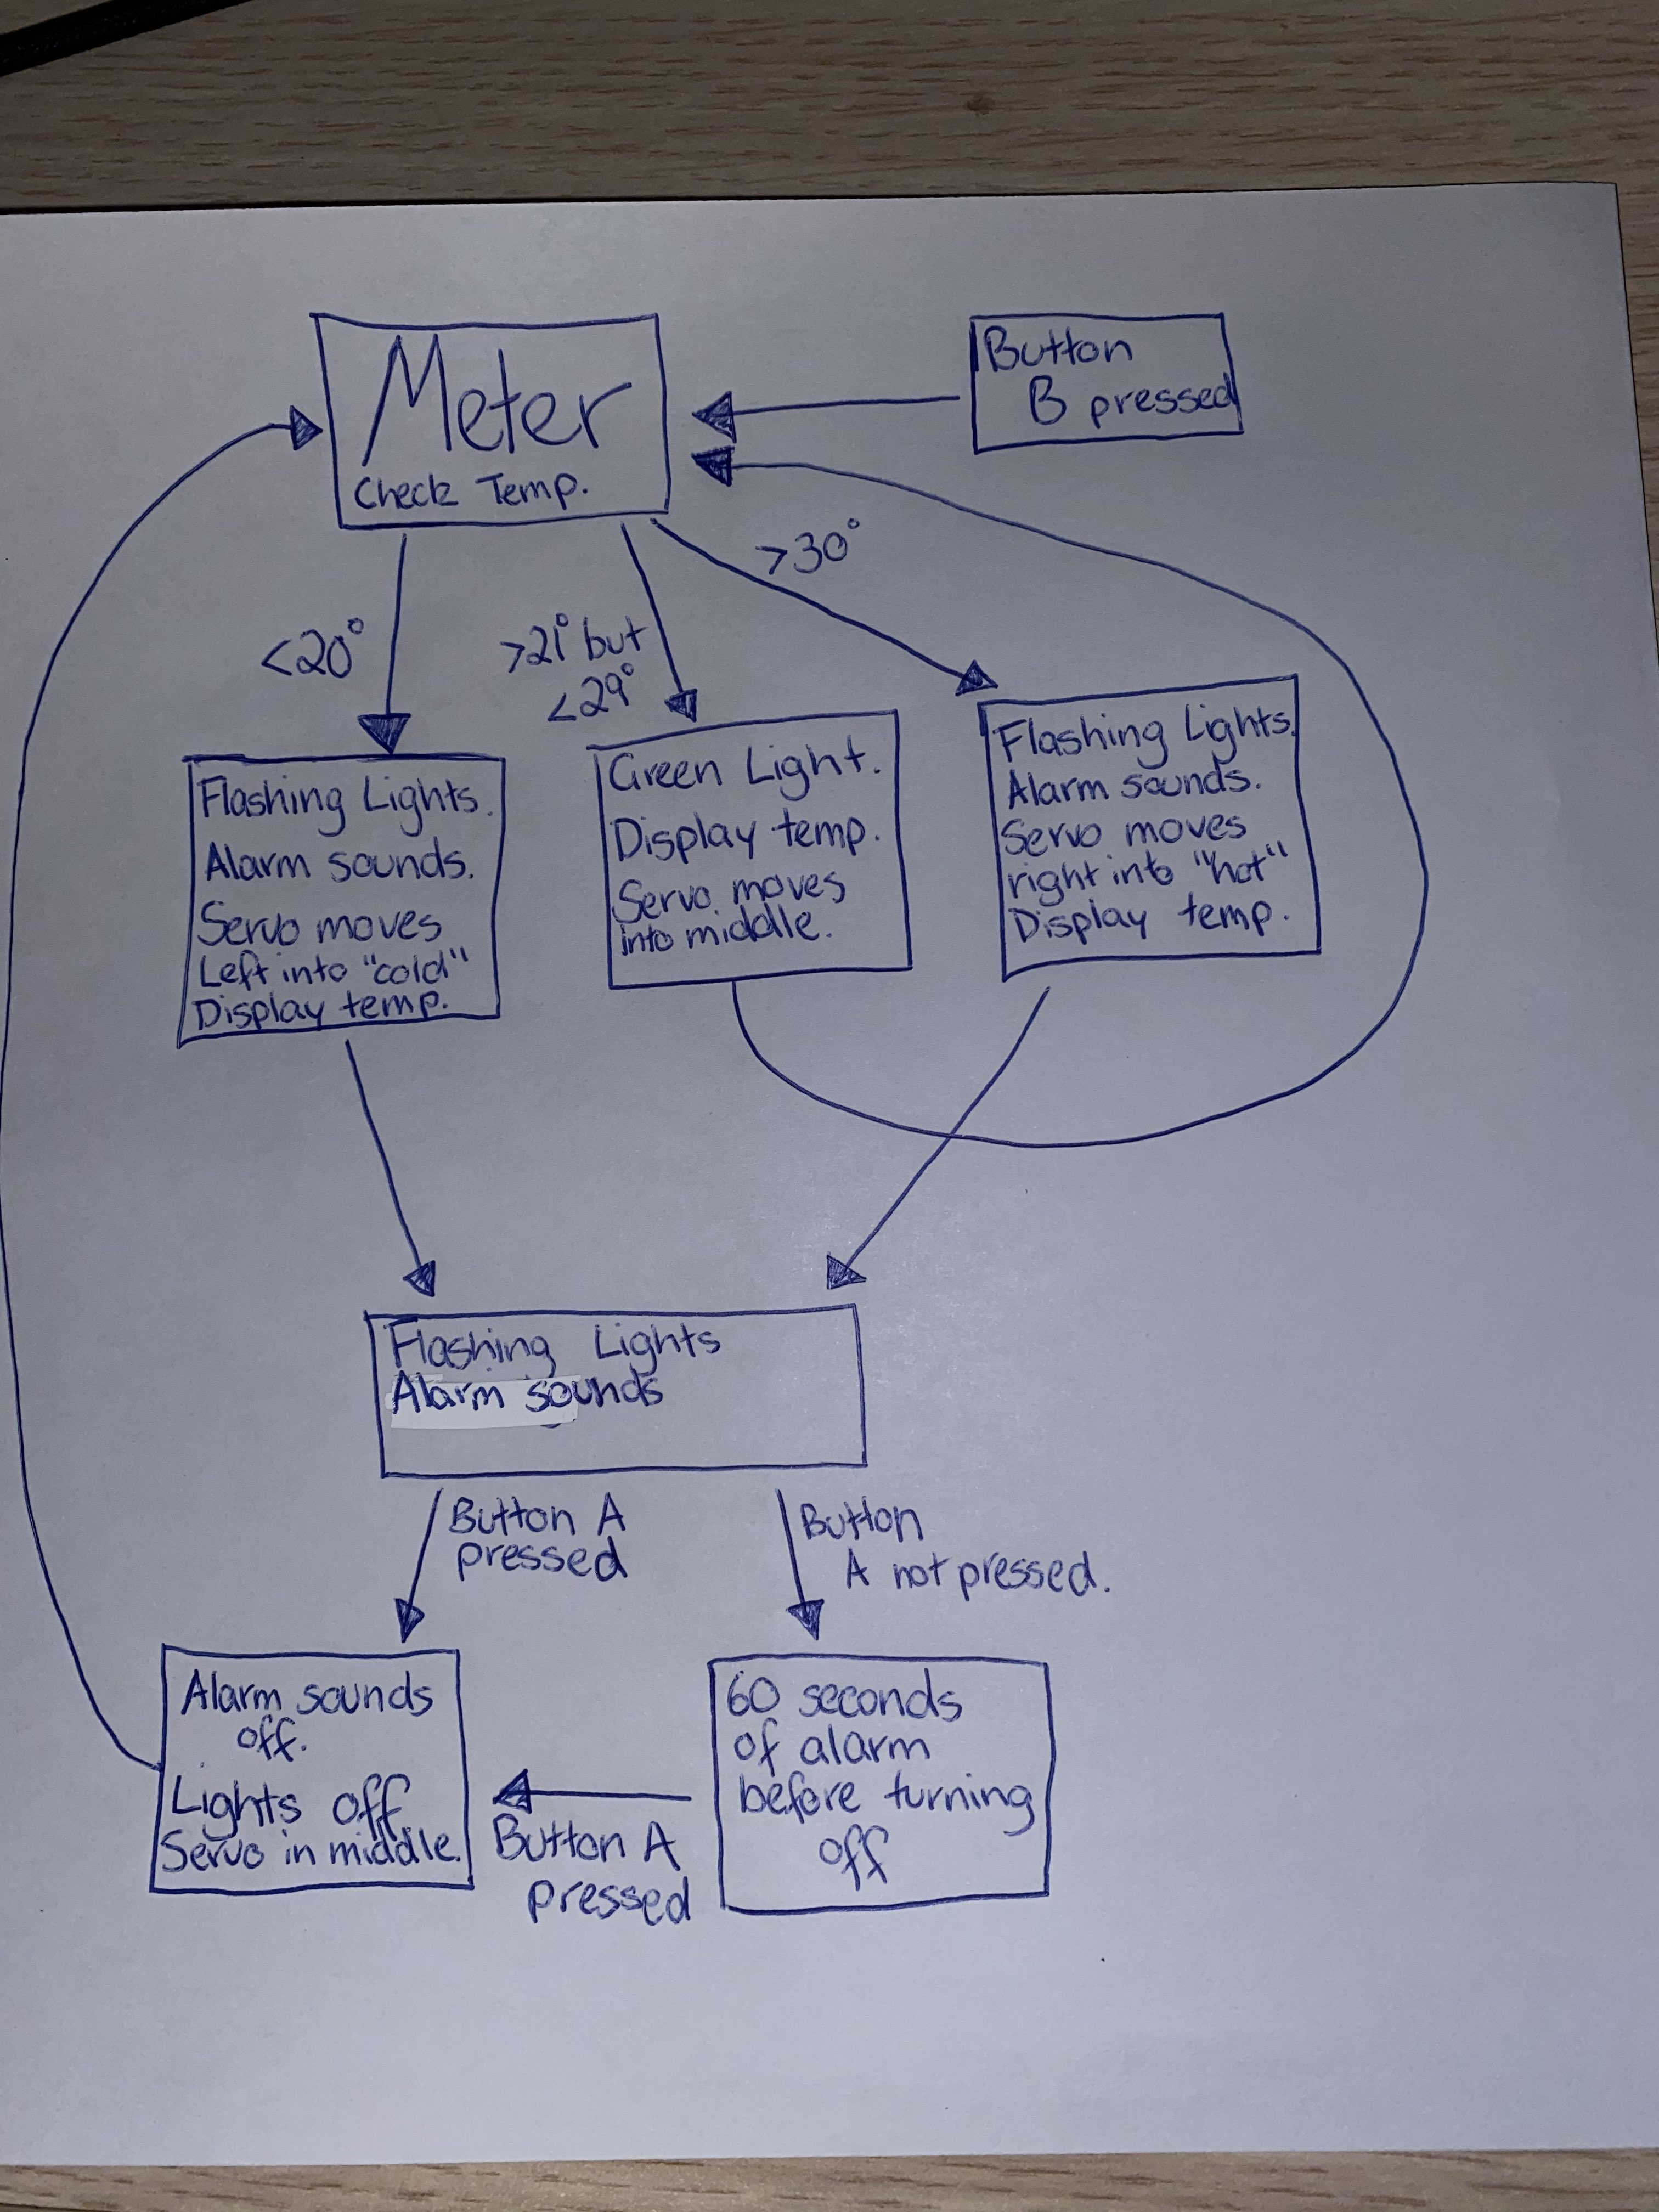 Meter
Check Temp.
Button
B pressed
<20°
>21° but
<29°
>30°
Flashing Lights.
Alarm sounds.
Servo moves
Left into "cold"
Display temp.
Green Light.
Display temp.
Servo moves
into middle.
Flashing Lights.
Alarm sounds.
Servo moves
right into "hot"
Display temp.
Flashing Lights
Alarm sounds
Button A
pressed
Button
A not pressed.
Alarm sounds
off.
Lights off
Servo in middle.
Button A
pressed
60 seconds
of alarm
before turning
off